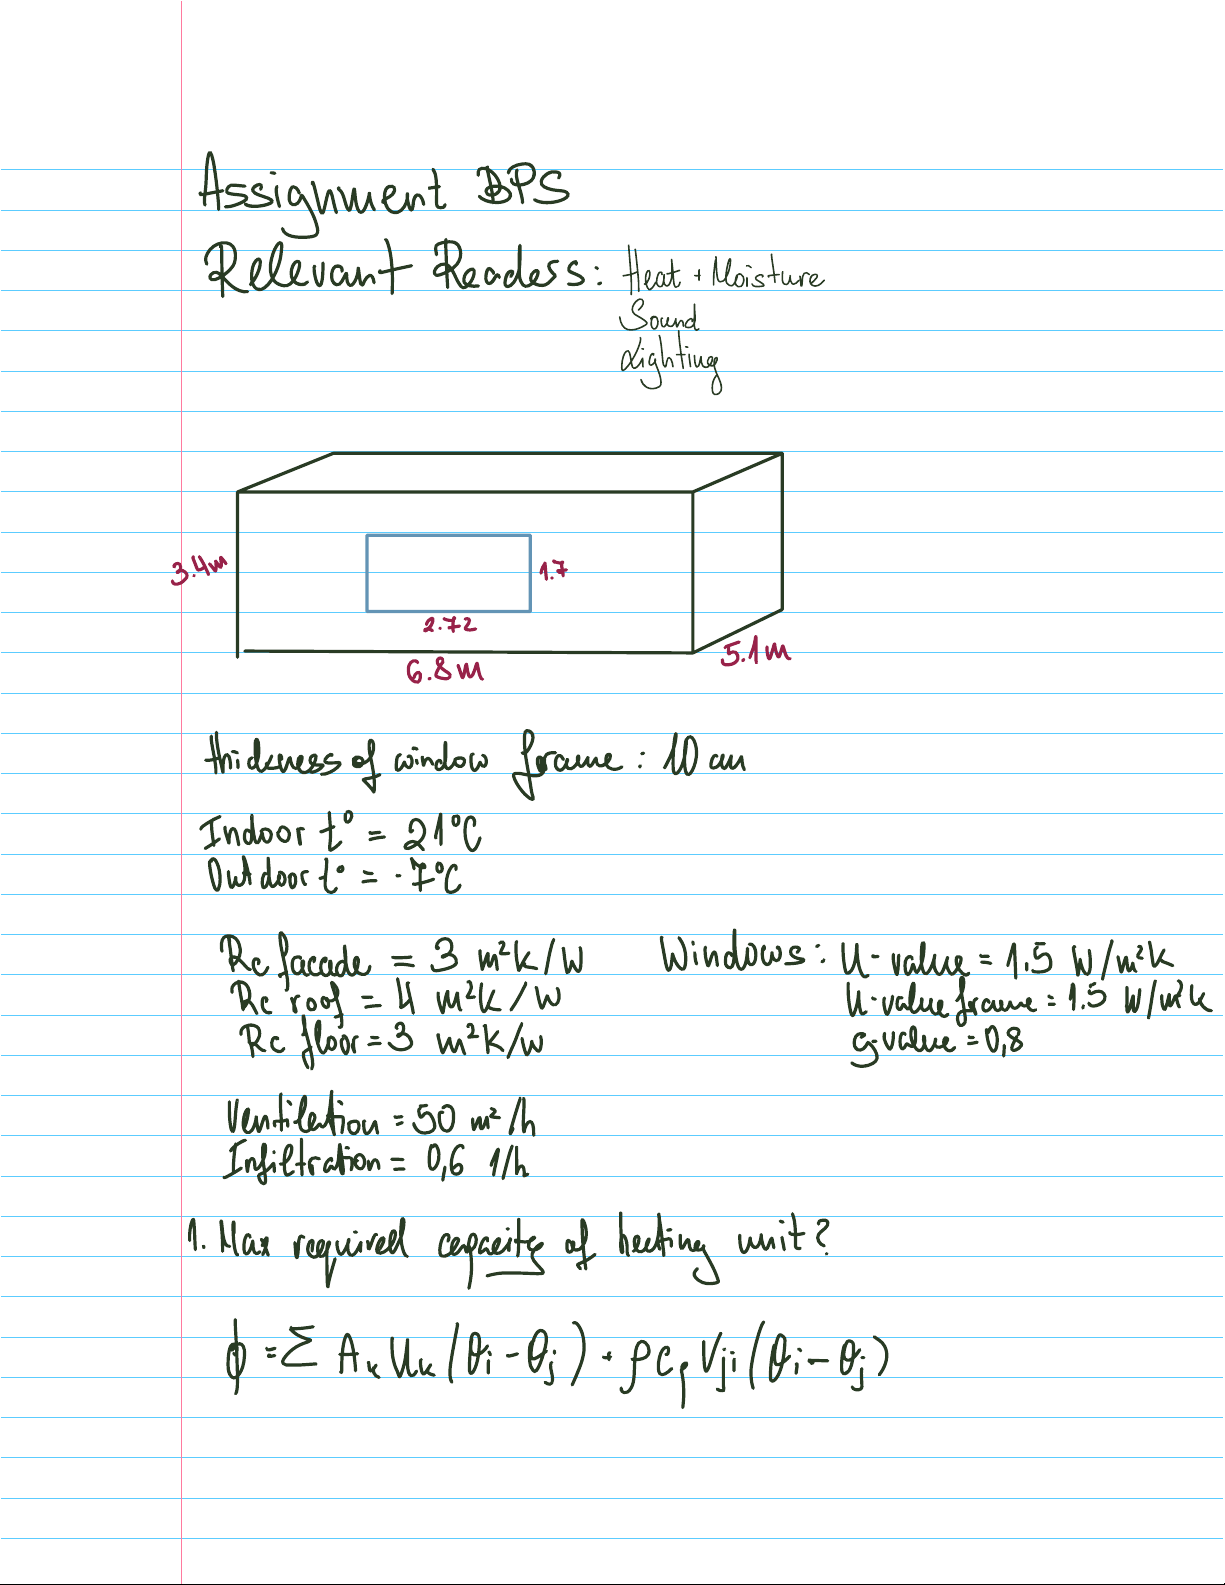 Assignment BPS
Relevant Readers: Heat + Moisture
Sound
Lighting
3.4m
1.7
2.72
6.8m
5.1m
thickness of window frame: 10 cm
Indoor t° = 21°C
Outdoor t° = -7°C
Rc facade = 3 m²K/W Windows: U-value = 1.5 W/m²K
Rc roof = 4 m²K/W U-value frame = 1.5 W/m²K
Rc floor = 3 m²K/W g-value = 0,8
Ventilation = 50 m²/h
Infiltration = 0,6 1/h
1. Max required capacity of heating unit?
ϕ = Σ Aₖ Uₖ (θi - θj) + ρ cp Vji (θi - θj)